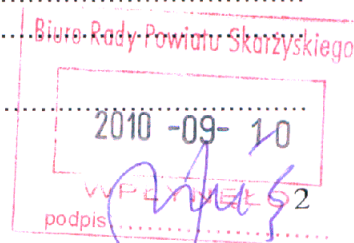 Biuro Rady Powiatu Skarżyskiego
2010 -09- 10
WPŁYNĘŁO
2
podpis